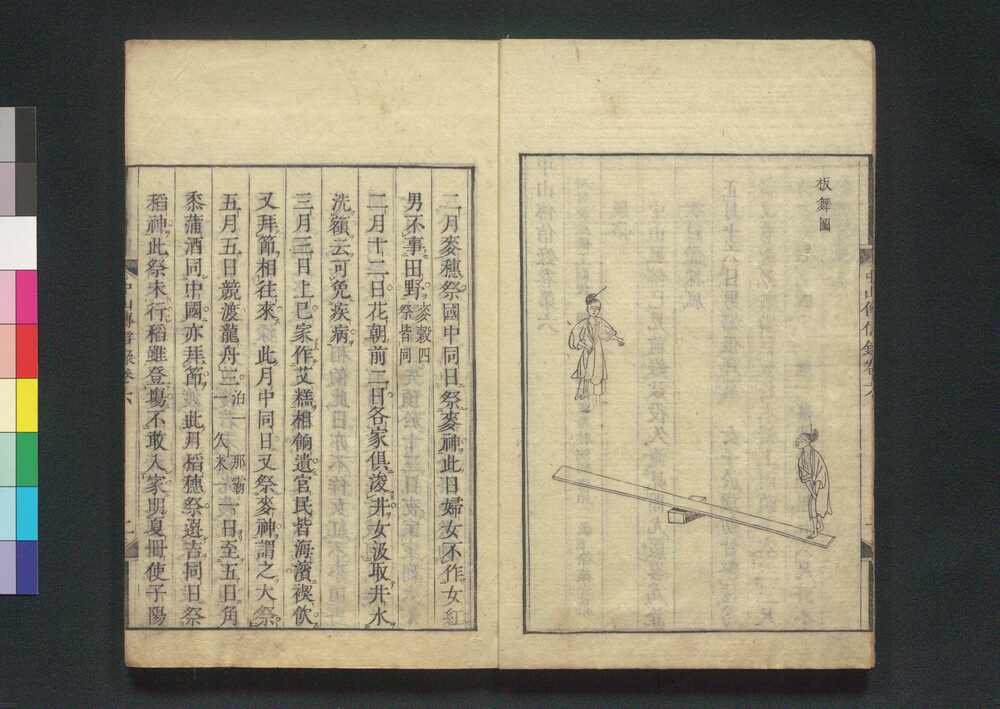 板舞圖
中山傳信錄卷六
二月麥穗祭國中同日祭麥神此日婦女不作女紅
男不事田野麥穀四祭皆同
二月十二日花朝前二日各家俱浚井女汲取井水
洗額云可免疾病
三月三日上巳家作艾糕相餉遺官民皆海濱禊飲
又拜節相往來此月中同日又祭麥神謂之大祭
五月五日競渡龍舟三泊一那霸一久米一一日至五日角
黍蒲酒同中國亦拜節此月稻穗祭選吉同日祭
稻神此祭未行稻雖登塲不敢入家明夏冊使子陽
中山傳信錄卷六
二